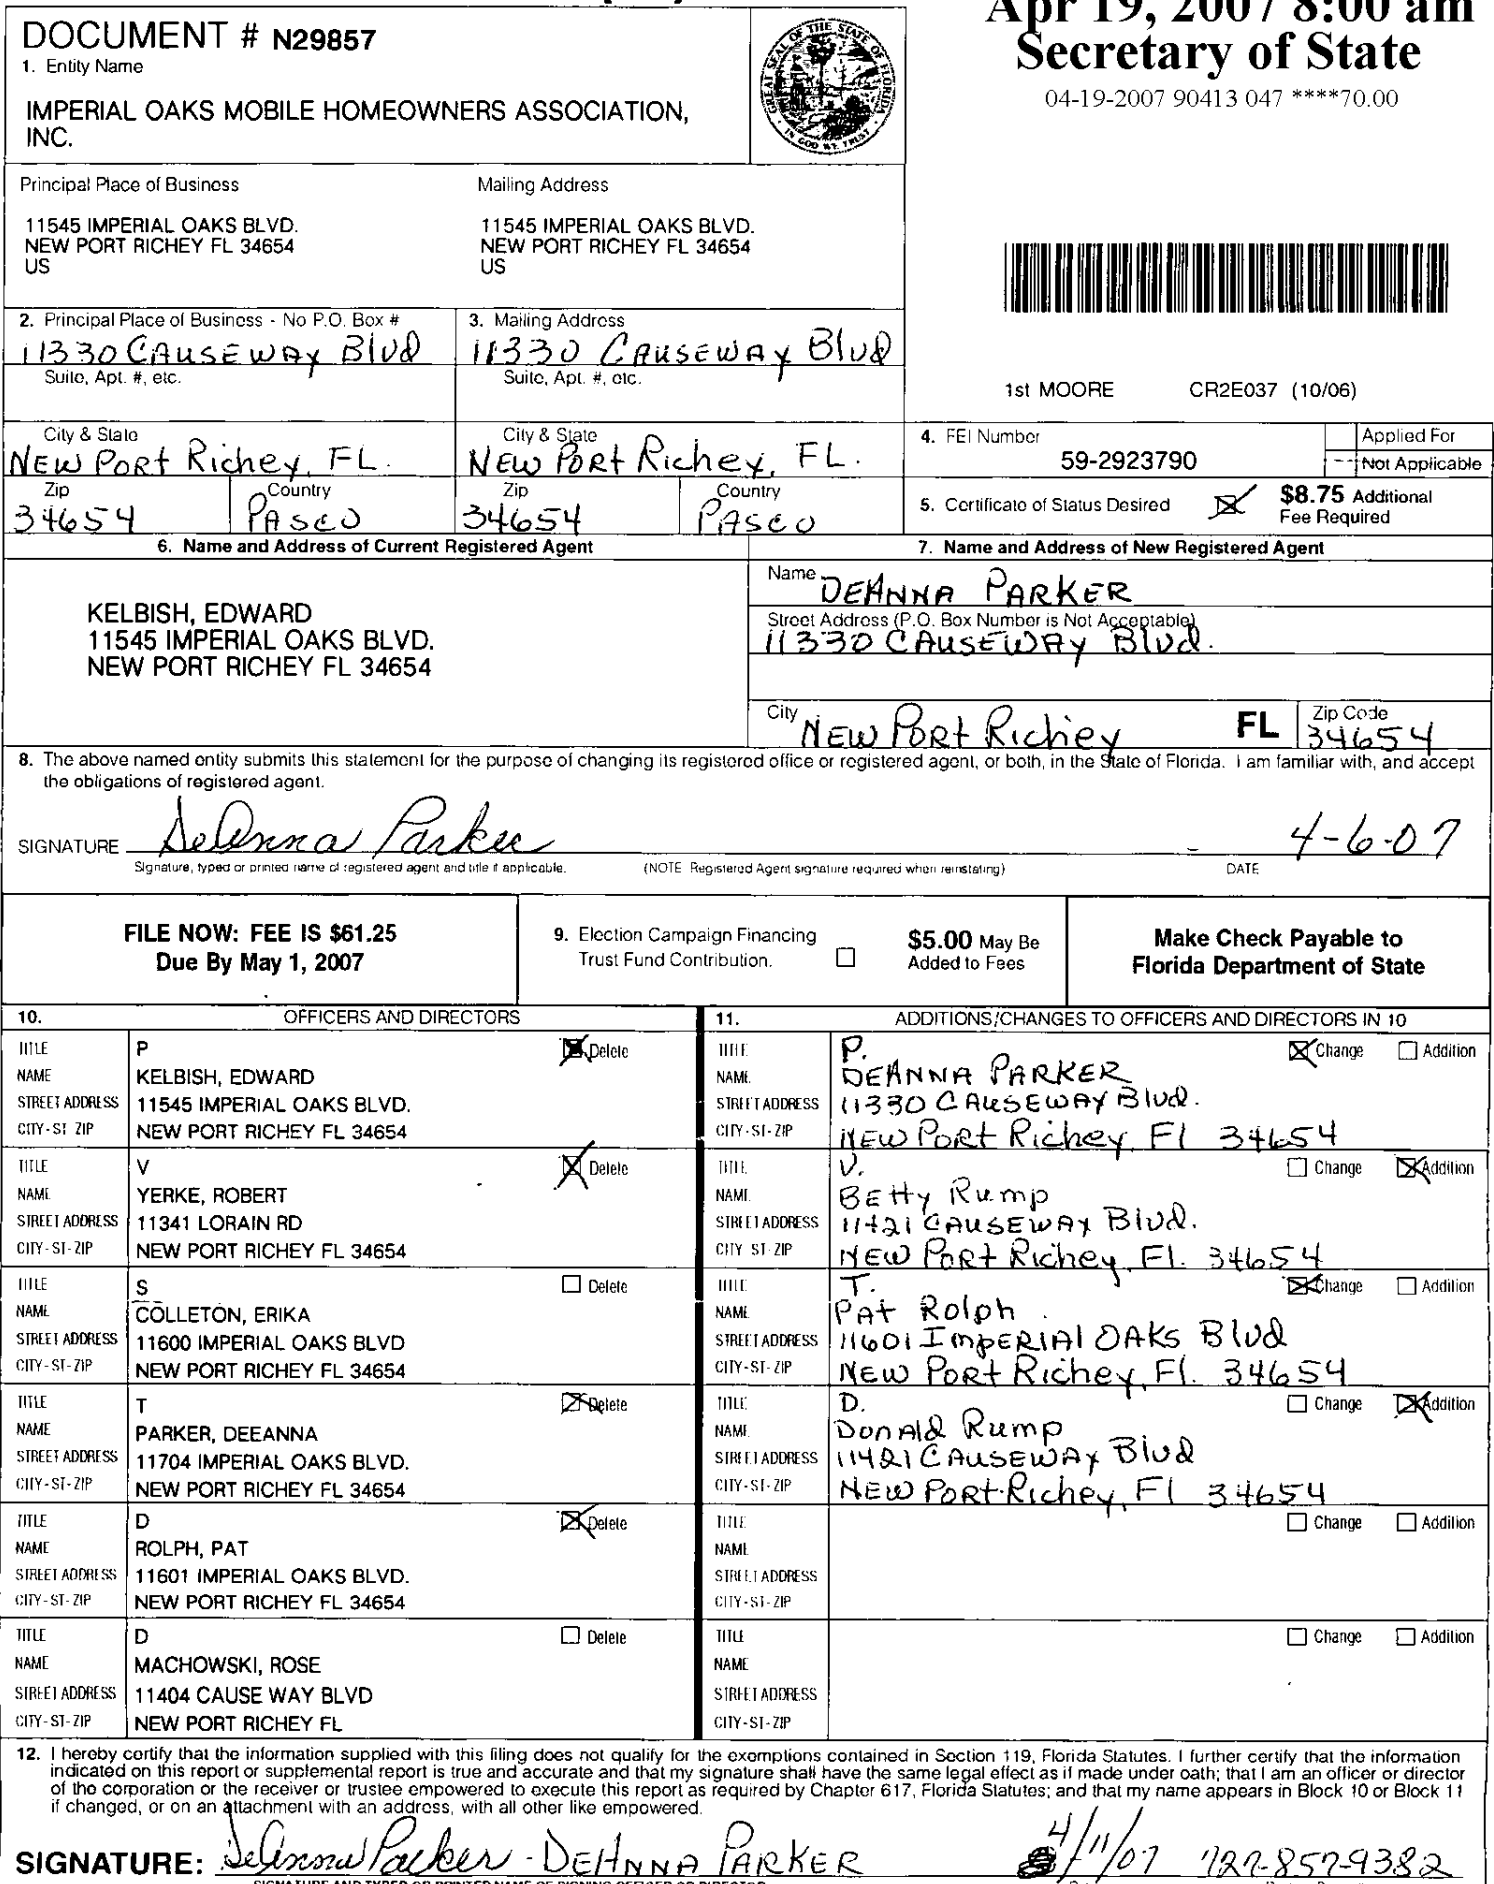 Apr 19, 2007 8:00 am
Secretary of State
04-19-2007 90413 047 ****70.00
DOCUMENT # N29857
1. Entity Name
IMPERIAL OAKS MOBILE HOMEOWNERS ASSOCIATION,
INC.
GREAT SEAL OF THE STATE OF FLORIDA
IN GOD WE TRUST
Principal Place of Business
11545 IMPERIAL OAKS BLVD.
NEW PORT RICHEY FL 34654
US
Mailing Address
11545 IMPERIAL OAKS BLVD.
NEW PORT RICHEY FL 34654
US
2. Principal Place of Business - No P.O. Box #
11330 CAUSEWAY Blvd
Suite, Apt. #, etc.
3. Mailing Address
11330 CAUSEWAY Blvd
Suite, Apt. #, etc.
1st MOORE CR2E037 (10/06)
City & State
NEW PORT Richey, FL.
City & State
NEW PORT Richey, FL.
Zip
34654
Country
PASCO
Zip
34654
Country
PASCO
4. FEI Number
59-2923790
Applied For
Not Applicable
5. Certificate of Status Desired
$8.75 Additional
Fee Required
6. Name and Address of Current Registered Agent
KELBISH, EDWARD
11545 IMPERIAL OAKS BLVD.
NEW PORT RICHEY FL 34654
7. Name and Address of New Registered Agent
Name DEANNA PARKER
Street Address (P.O. Box Number is Not Acceptable)
11330 CAUSEWAY Blvd.
City NEW PORT Richey FL Zip Code 34654
8. The above named entity submits this statement for the purpose of changing its registered office or registered agent, or both, in the State of Florida. I am familiar with, and accept
the obligations of registered agent.
SIGNATURE DeAnna Parker 4-6-07
Signature, typed or printed name of registered agent and title if applicable. (NOTE Registered Agent signature required when reinstating) DATE
FILE NOW: FEE IS $61.25
Due By May 1, 2007
9. Election Campaign Financing
Trust Fund Contribution.
$5.00 May Be
Added to Fees
Make Check Payable to
Florida Department of State
10. OFFICERS AND DIRECTORS
TITLE P Delete
NAME KELBISH, EDWARD
STREET ADDRESS 11545 IMPERIAL OAKS BLVD.
CITY-ST ZIP NEW PORT RICHEY FL 34654
TITLE V Delete
NAME YERKE, ROBERT
STREET ADDRESS 11341 LORAIN RD
CITY-ST-ZIP NEW PORT RICHEY FL 34654
TITLE S Delete
NAME COLLETON, ERIKA
STREET ADDRESS 11600 IMPERIAL OAKS BLVD
CITY-ST-ZIP NEW PORT RICHEY FL 34654
TITLE T Delete
NAME PARKER, DEEANNA
STREET ADDRESS 11704 IMPERIAL OAKS BLVD.
CITY-ST-ZIP NEW PORT RICHEY FL 34654
TITLE D Delete
NAME ROLPH, PAT
STREET ADDRESS 11601 IMPERIAL OAKS BLVD.
CITY-ST-ZIP NEW PORT RICHEY FL 34654
TITLE D Delete
NAME MACHOWSKI, ROSE
STREET ADDRESS 11404 CAUSE WAY BLVD
CITY-ST-ZIP NEW PORT RICHEY FL
11. ADDITIONS/CHANGES TO OFFICERS AND DIRECTORS IN 10
TITLE P. Change Addition
NAME DEANNA PARKER
STREET ADDRESS 11330 CAUSEWAY Blvd.
CITY-ST-ZIP NEW PORT Richey, Fl 34654
TITLE V. Change Addition
NAME BEtty Rump
STREET ADDRESS 11421 CAUSEWAY Blvd.
CITY ST-ZIP NEW PORT Richey, Fl. 34654
TITLE T. Change Addition
NAME PAt Rolph
STREET ADDRESS 11601 ImpERIAl OAKS Blvd
CITY-ST-ZIP NEW PORT Richey, Fl. 34654
TITLE D. Change Addition
NAME DonAld Rump
STREET ADDRESS 11421 CAUSEWAY Blvd
CITY-ST-ZIP NEW PORT Richey, Fl 34654
TITLE Change Addition
NAME
STREET ADDRESS
CITY-ST-ZIP
TITLE Change Addition
NAME
STREET ADDRESS
CITY-ST-ZIP
12. I hereby certify that the information supplied with this filing does not qualify for the exemptions contained in Section 119, Florida Statutes. I further certify that the information
indicated on this report or supplemental report is true and accurate and that my signature shall have the same legal effect as if made under oath; that I am an officer or director
of the corporation or the receiver or trustee empowered to execute this report as required by Chapter 617, Florida Statutes; and that my name appears in Block 10 or Block 11
if changed, or on an attachment with an address, with all other like empowered.
SIGNATURE: DeAnna Parker - DEANNA PARKER 4/11/07 727-857-9382
SIGNATURE AND TYPED OR PRINTED NAME OF SIGNING OFFICER OR DIRECTOR